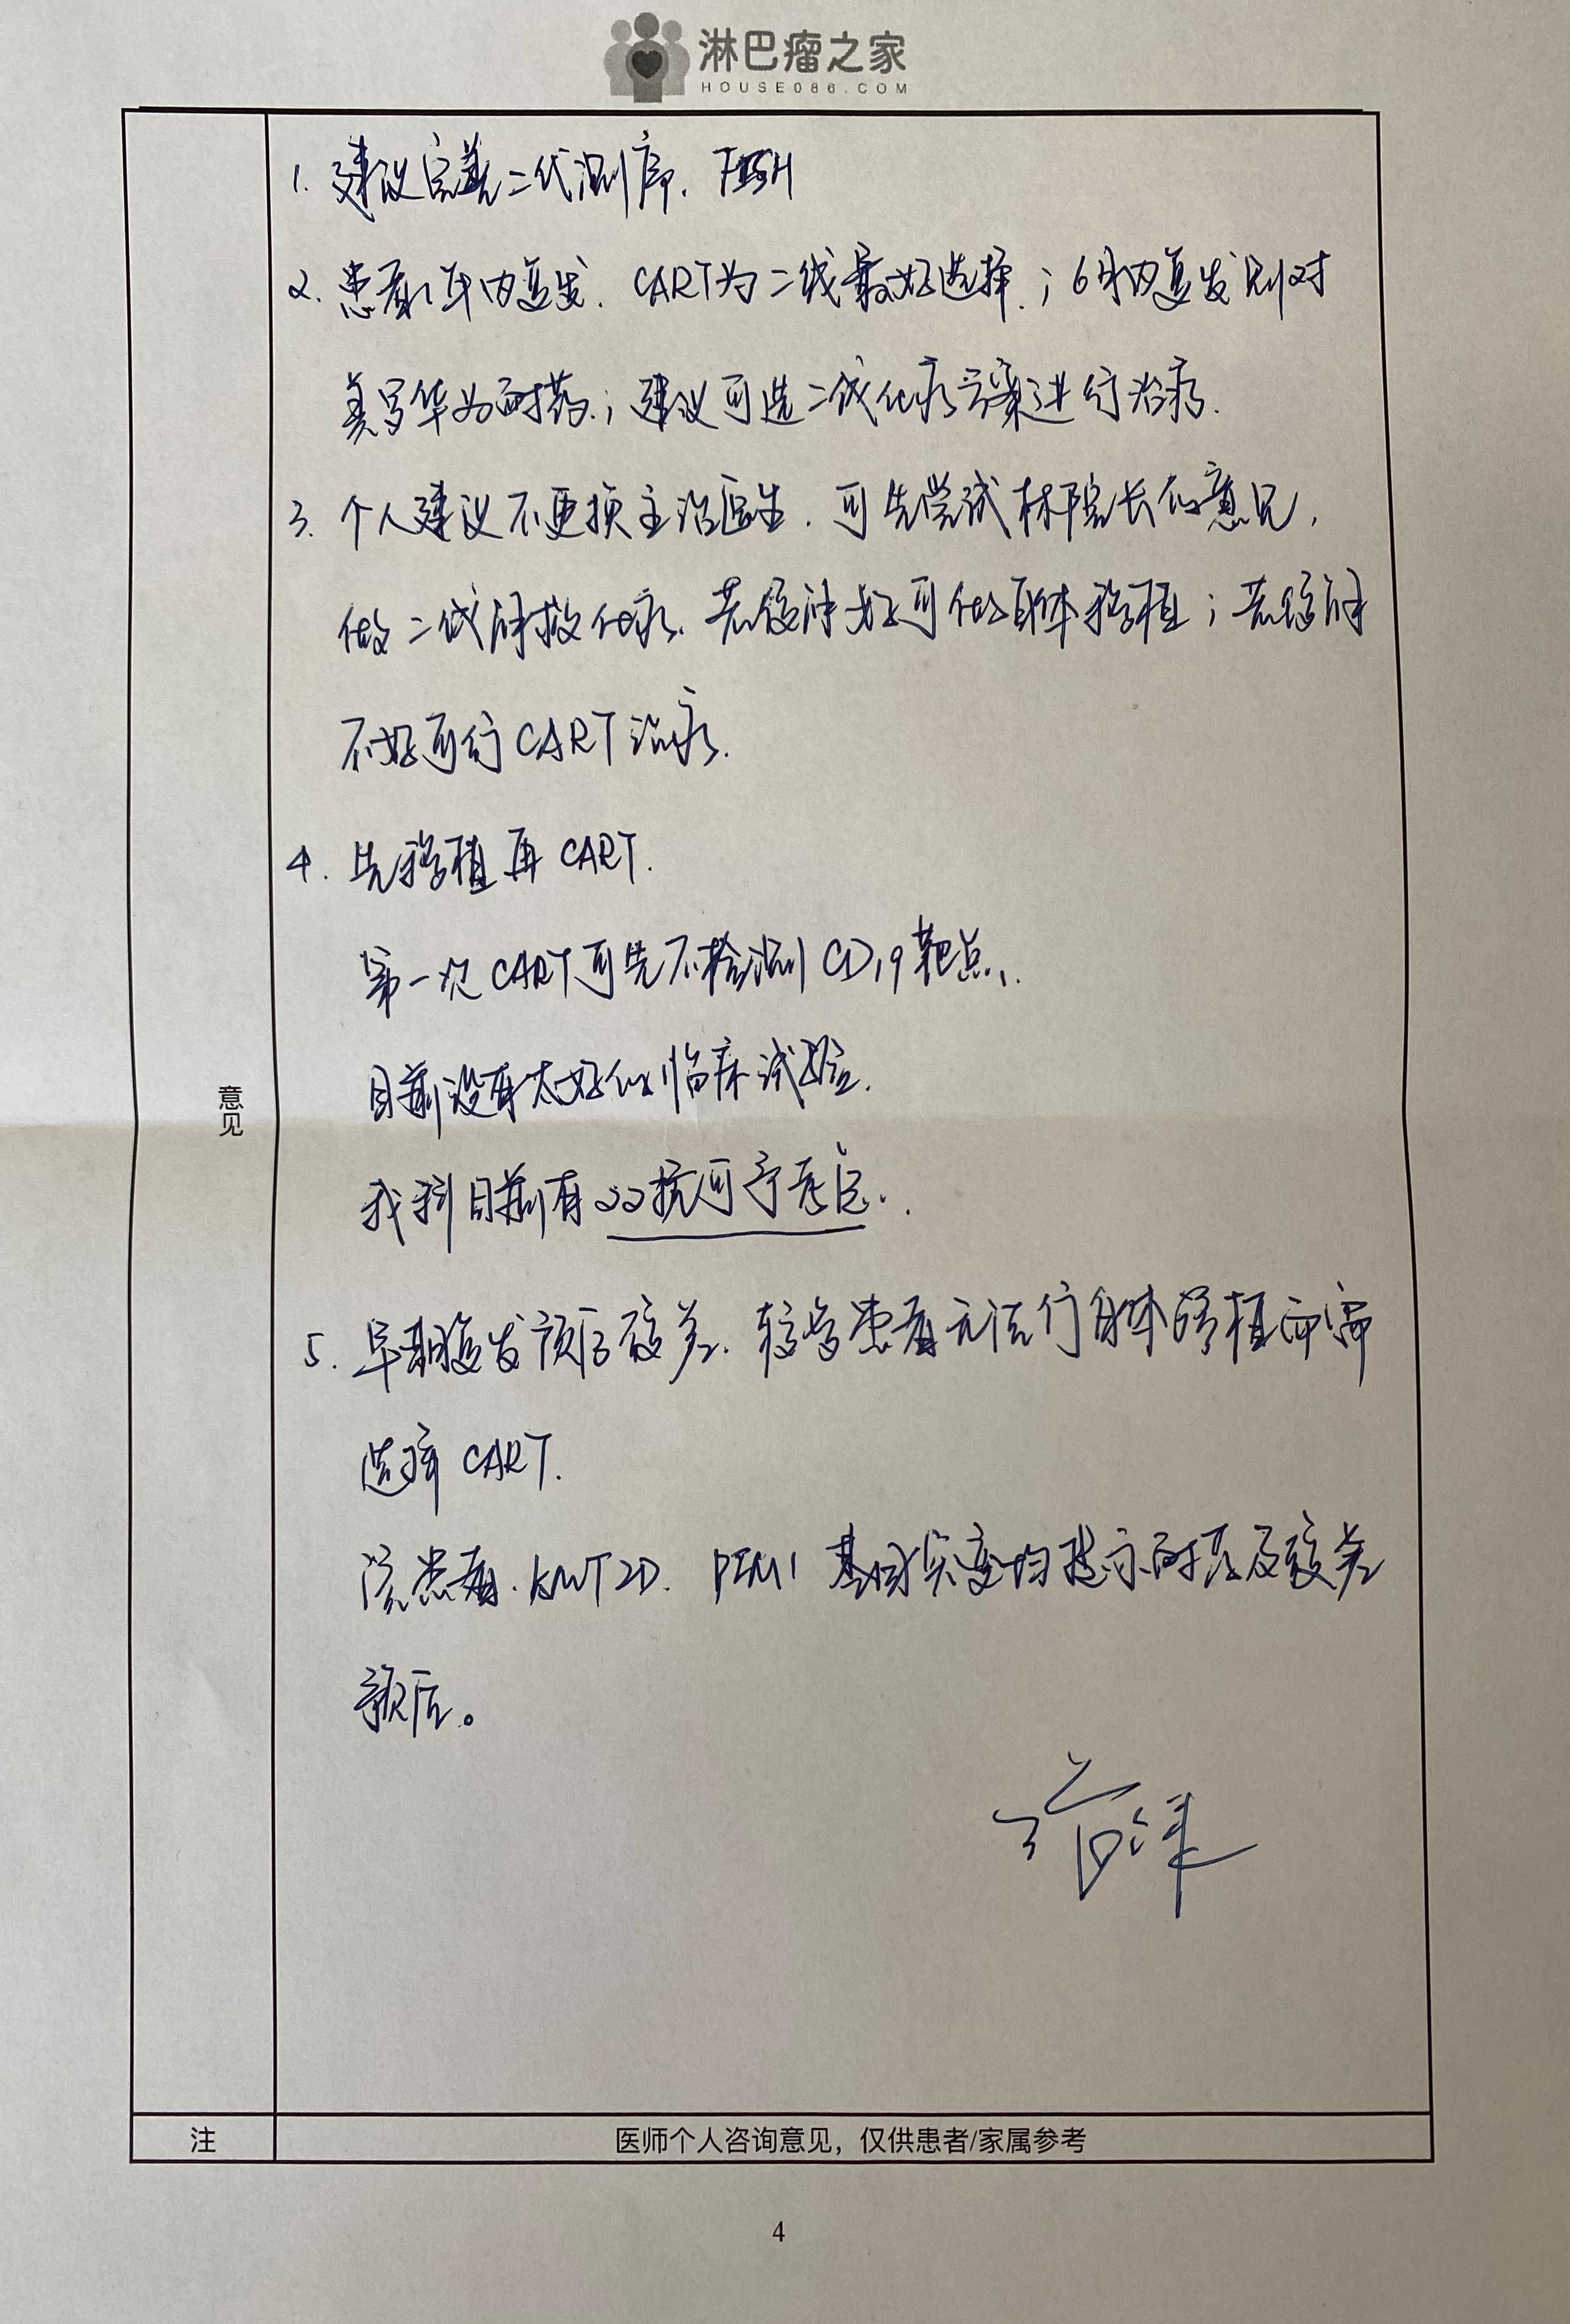 淋巴瘤之家
HOUSE086.COM
1. 建议完善二代测序、FISH
2. 患者1年内复发、CART为二线最好选择；6月内复发则对
美罗华为耐药；建议可选二线化疗方案进行治疗.
3. 个人建议不更换主治医生. 可先尝试林院长的意见,
做二线解救化疗. 若缓解好可做自体移植；若缓解
不好可行CART治疗.
4. 先移植再CART.
第一次CART可先不检测CD19靶点.
目前没有太好的临床试验.
我科目前有双抗可予考虑.
5. 早期复发预后较差. 较多患者无法行自体移植而需
选择CART.
该患者、KMT2D、PIM1基因突变均提示耐药及较差
预后。
意见
注
医师个人咨询意见，仅供患者/家属参考
4